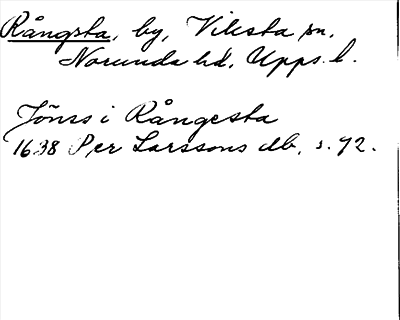 Rångsta, by, Viksta sn,
Norunda hd, Upps. l.
Jönss i Rångesta
1638 Per Larssons db, s. 92.